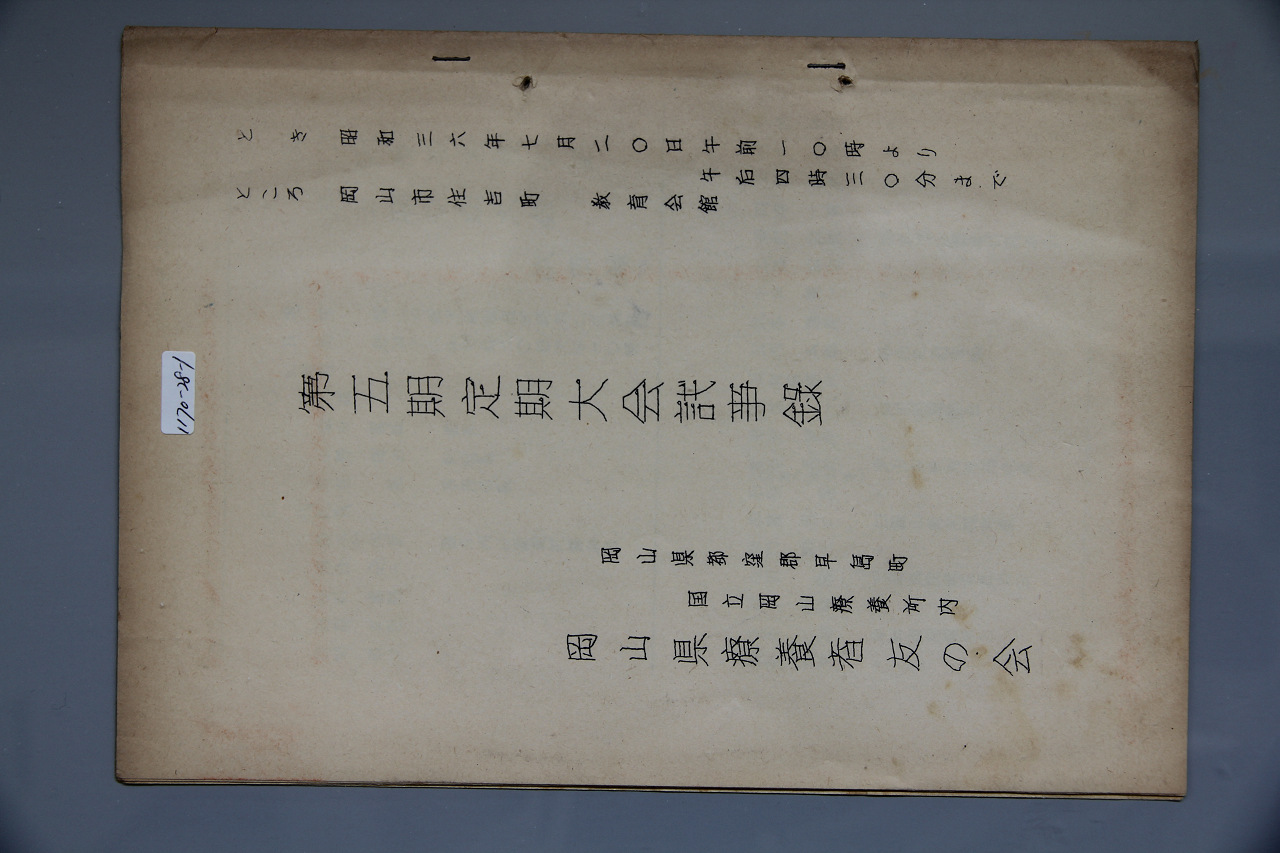 とき 昭和三六年七月二〇日午前一〇時より
午后四時三〇分まで
ところ 岡山市住吉町 教育会館
第五期定期大会議事録
岡山県都窪郡早島町
国立岡山療養所内
岡山県療養者友の会
1170-28-1